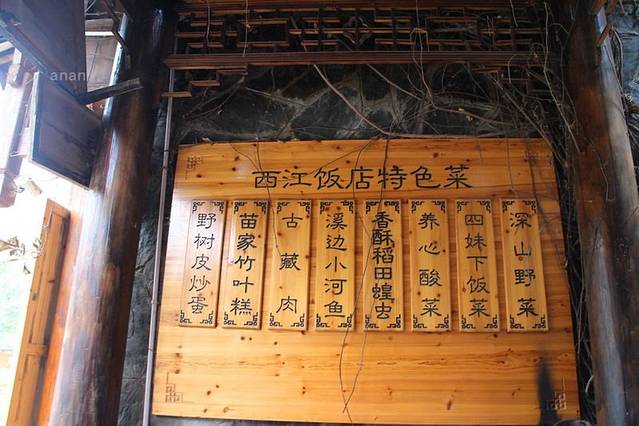 anan
西江饭店特色菜
野树皮炒蛋
苗家竹叶糕
古藏肉
溪边小河鱼
香酥稻田蝗虫
养心酸菜
四妹下饭菜
深山野菜